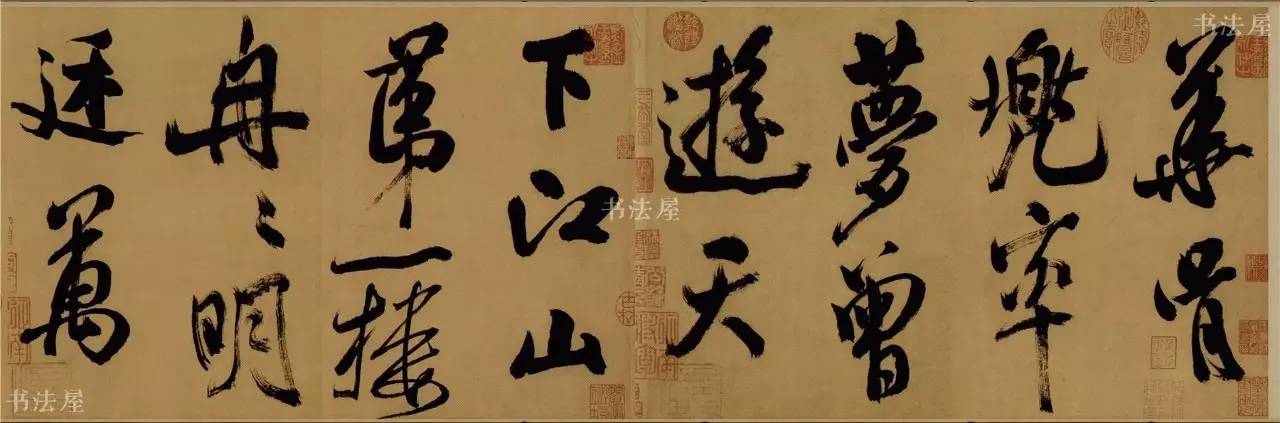 華胥
兜率
夢曾
遊天
下江山
第一樓
冉〻明
廷萬
书法屋
书法屋
书法屋